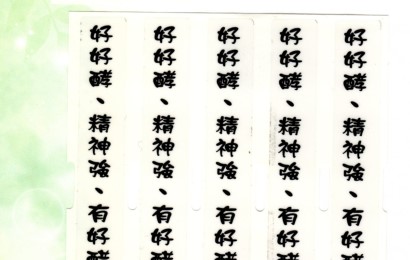 好好酵、精神強、有好
好好酵、精神強、有好
好好酵、精神強、有好
好好酵、精神強、有好
好好酵、精神強、有好